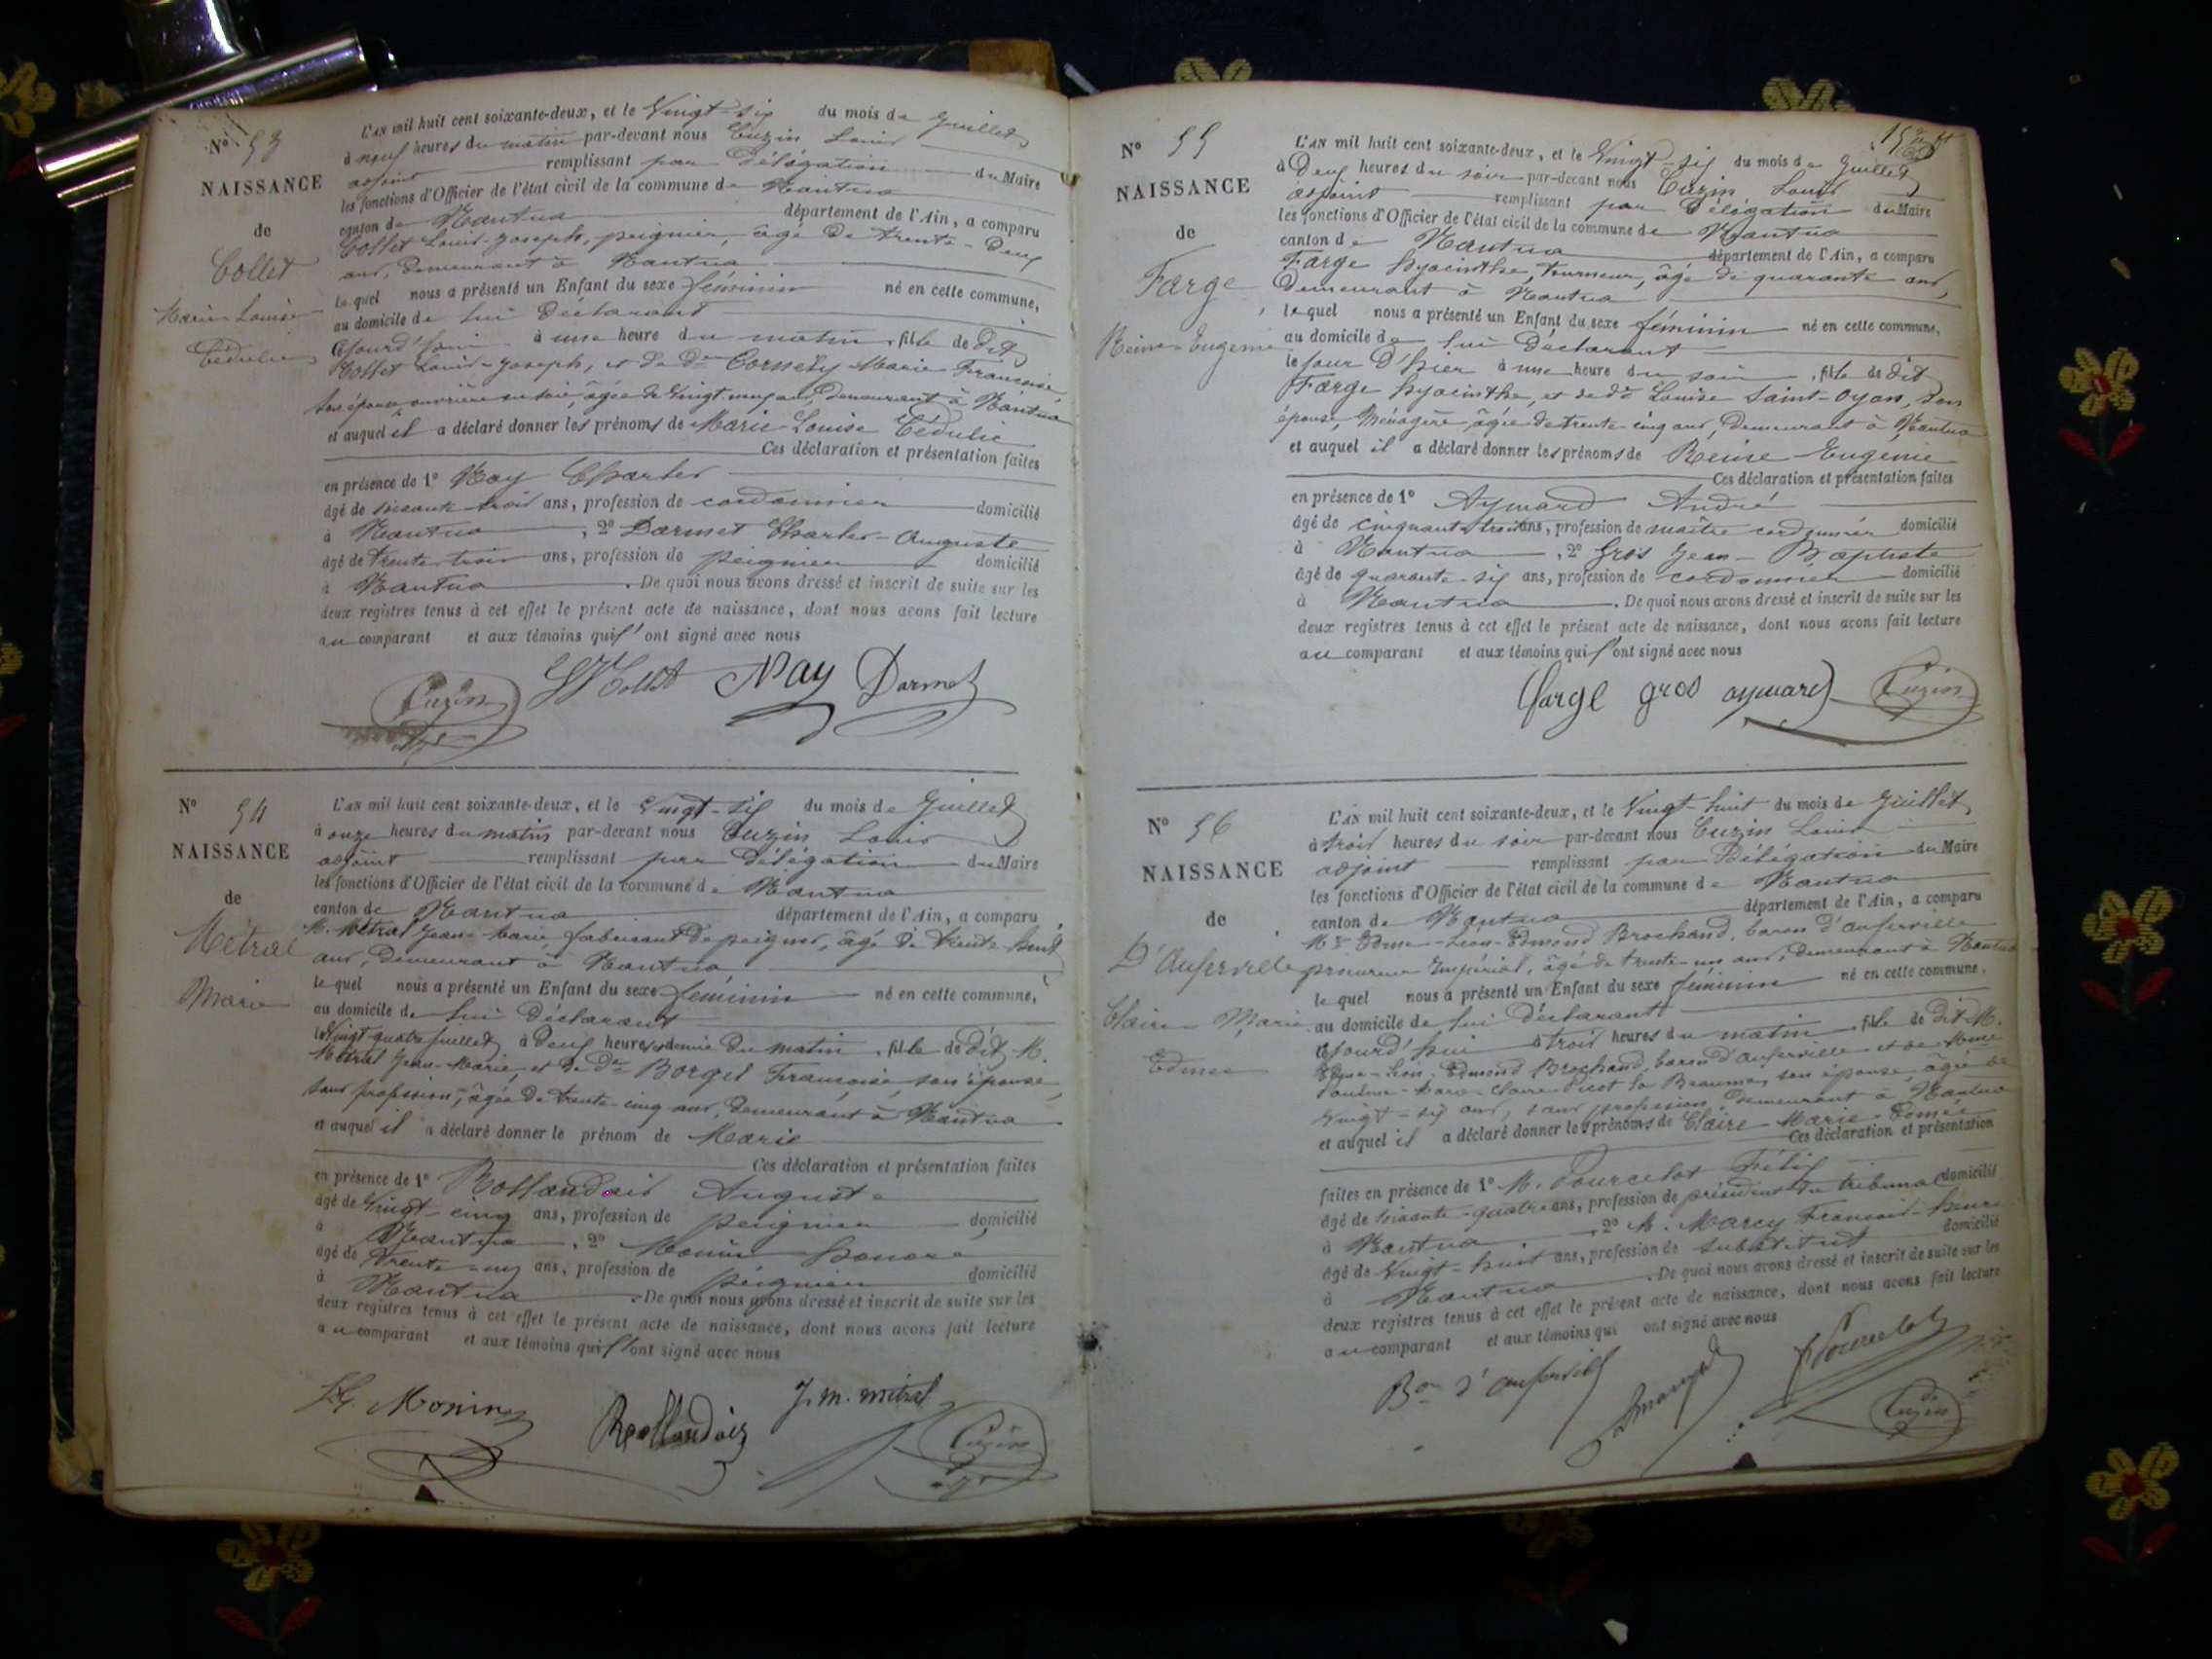 N° 53
NAISSANCE
de
Collet
Marie Louise
Cédulie
L'AN mil huit cent soixante-deux, et le Vingt-six du mois de Juillet
à neuf heures du matin par-devant nous Cuzin Louis
adjoint remplissant par Délégation du Maire
les fonctions d'Officier de l'état civil de la commune de Nantua
canton de Nantua département de l'Ain, a comparu
Collet Louis-Joseph, peignier, âgé de trente-deux
ans, demeurant à Nantua
lequel nous a présenté un Enfant du sexe féminin né en cette commune,
au domicile de lui Déclarant
cejourd'hui à une heure du matin, fille de dit
Collet Louis-Joseph, et de De Cornely Marie Françoise
son épouse ouvrière en soie, âgée de Vingt-neuf ans, demeurant à Nantua
et auquel il a déclaré donner les prénoms de Marie-Louise Cédulie
Ces déclaration et présentation faites
en présence de 1° Nay Charles
âgé de soixante trois ans, profession de cordonnier domicilié
à Nantua, 2° Darmet Charles-Auguste
âgé de trente trois ans, profession de peignier domicilié
à Nantua. De quoi nous avons dressé et inscrit de suite sur les
deux registres tenus à cet effet le présent acte de naissance, dont nous avons fait lecture
au comparant et aux témoins qui l'ont signé avec nous
Cuzin Collet Nay Darmet
N° 54
NAISSANCE
de
Métral
Marie
L'AN mil huit cent soixante-deux, et le Vingt-six du mois de Juillet
à onze heures du matin par-devant nous Cuzin Louis
adjoint remplissant par Délégation du Maire
les fonctions d'Officier de l'état civil de la commune de Nantua
canton de Nantua département de l'Ain, a comparu
M. Métral Jean-Marie, fabricant de peignes, âgé de trente huit
ans, demeurant à Nantua
lequel nous a présenté un Enfant du sexe féminin né en cette commune,
au domicile de lui Déclarant
le Vingt-quatre Juillet à Deux heures et demie du matin, fille de dit M.
Métral Jean-Marie, et de De Borget Françoise, son épouse,
sans profession, âgée de trente-cinq ans, demeurant à Nantua
et auquel il a déclaré donner le prénom de Marie
Ces déclaration et présentation faites
en présence de 1° Rollandais Auguste
âgé de Vingt-cinq ans, profession de peignier domicilié
à Nantua, 2° Monin honoré
âgé de trente-un ans, profession de peignier domicilié
à Nantua. De quoi nous avons dressé et inscrit de suite sur les
deux registres tenus à cet effet le présent acte de naissance, dont nous avons fait lecture
au comparant et aux témoins qui l'ont signé avec nous
Monin Rollandais J. M. métral Cuzin
N° 55
NAISSANCE
de
Farge
Reine Eugénie
L'AN mil huit cent soixante-deux, et le Vingt-six du mois de Juillet
à Deux heures du soir par-devant nous Cuzin Louis
adjoint remplissant par Délégation du Maire
les fonctions d'Officier de l'état civil de la commune de Nantua
canton de Nantua département de l'Ain, a comparu
Farge hyacinthe, tourneur, âgé de quarante ans,
demeurant à Nantua
lequel nous a présenté un Enfant du sexe féminin né en cette commune,
au domicile de lui Déclarant
le jour d'hier à une heure du soir, fille de dit
Farge hyacinthe, et de De Louise Saint-Oyan, son
épouse, Ménagère âgée de trente-cinq ans, demeurant à Nantua
et auquel il a déclaré donner les prénoms de Reine Eugénie
Ces déclaration et présentation faites
en présence de 1° Aymard André
âgé de cinquante trois ans, profession de maître cordonnier domicilié
à Nantua, 2° Gros Jean-Baptiste
âgé de quarante-six ans, profession de cordonnier domicilié
à Nantua. De quoi nous avons dressé et inscrit de suite sur les
deux registres tenus à cet effet le présent acte de naissance, dont nous avons fait lecture
au comparant et aux témoins qui l'ont signé avec nous
farge gros aymard Cuzin
N° 56
NAISSANCE
de
D'Auferville
Claire Marie
Edmée
L'AN mil huit cent soixante-deux, et le Vingt-huit du mois de Juillet
à trois heures du soir par-devant nous Cuzin Louis
adjoint remplissant par Délégation du Maire
les fonctions d'Officier de l'état civil de la commune de Nantua
canton de Nantua département de l'Ain, a comparu
Mr Edme-Léon-Edmond Brochand, baron d'auferville
procureur Impérial, âgé de trente-un ans, demeurant à Nantua
lequel nous a présenté un Enfant du sexe féminin né en cette commune,
au domicile de lui déclarant
cejourd'hui à trois heures du matin, fille de dit M.
Edme-Léon-Edmond Brochand, baron d'auferville et de Mme
Pauline-Marie-Claire Picot la Beaume, son épouse, âgée de
Vingt-six ans, sans profession demeurant à Nantua
et auquel il a déclaré donner les prénoms de Claire-Marie-Edmée
Ces déclaration et présentation
faites en présence de 1° M. Pourcelot Félix
âgé de soixante-quatre ans, profession de président du tribunal domicilié
à Nantua, 2° M. Marcy François-henri
âgé de Vingt-huit ans, profession de substitut domicilié
à Nantua. De quoi nous avons dressé et inscrit de suite sur les
deux registres tenus à cet effet le présent acte de naissance, dont nous avons fait lecture
au comparant et aux témoins qui ont signé avec nous
Bon d'auferville Pourcelot Cuzin